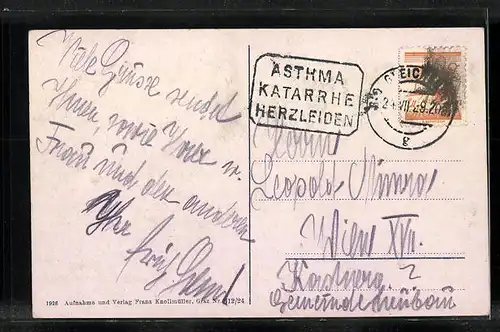 Viele Grüsse sendet
Ihnen, sowie Ihrer w.
Frau und den anderen
Ihr
Fritz
ASTHMA
KATARRHE
HERZLEIDEN
BAD GLEICH
Herrn
Leopold
Wien XVI.
Gemeindeneubau
1926 Aufnahme und Verlag Franz Knollmüller, Graz Nr. 12/24